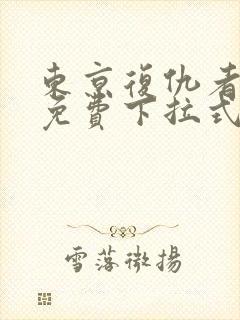 東京復仇者
免費下拉式
雪落微揚